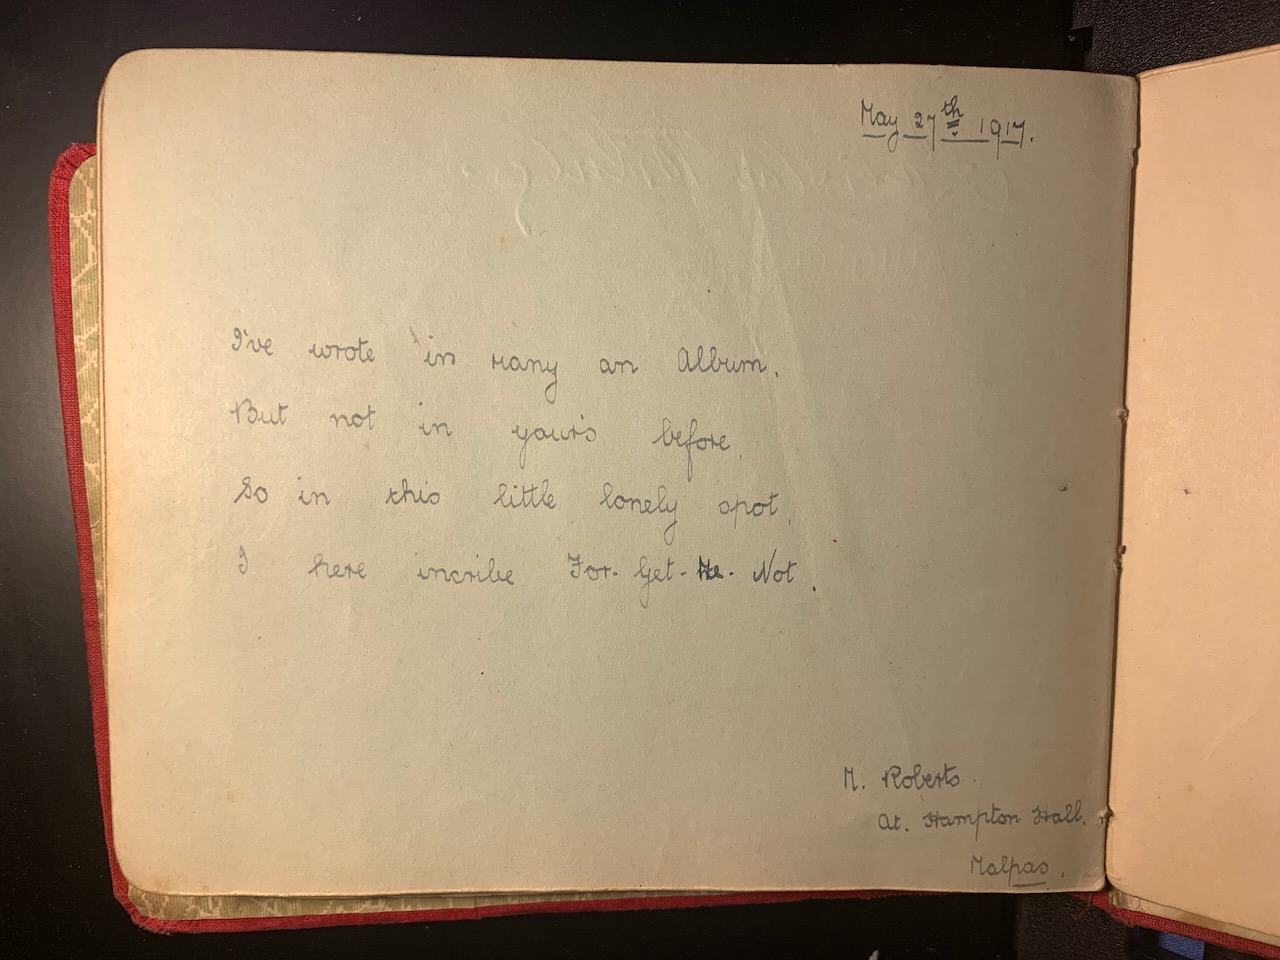 May 27th 1917.
I've wrote in many an Album,
But not in your's before,
So in this little lonely spot,
I here incribe For-Get-Me-Not.
M. Roberts.
At. Hampton Hall.
Malpas.